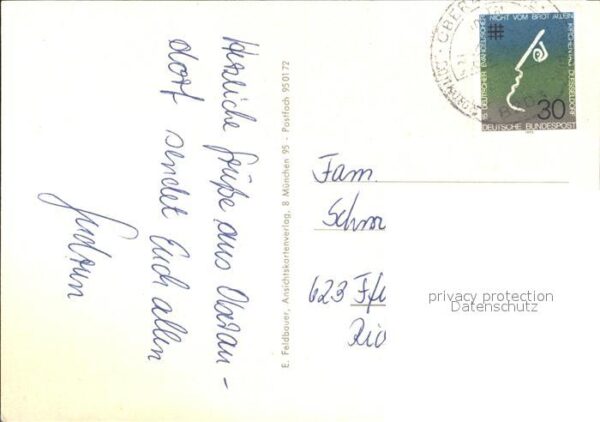 Herzliche Grüße aus Oberau-
dorf sendet Euch allen
Gudrun
E. Feldbauer, Ansichtskartenverlag, 8 München 95 - Postfach 950172
NICHT VOM BROT ALLEIN
15 DEUTSCHER EVANGELISCHER
KIRCHENTAG DUESSELDORF
30
DEUTSCHE BUNDESPOST
Fam.
Schm
623 Ff
privacy protection
Datenschutz